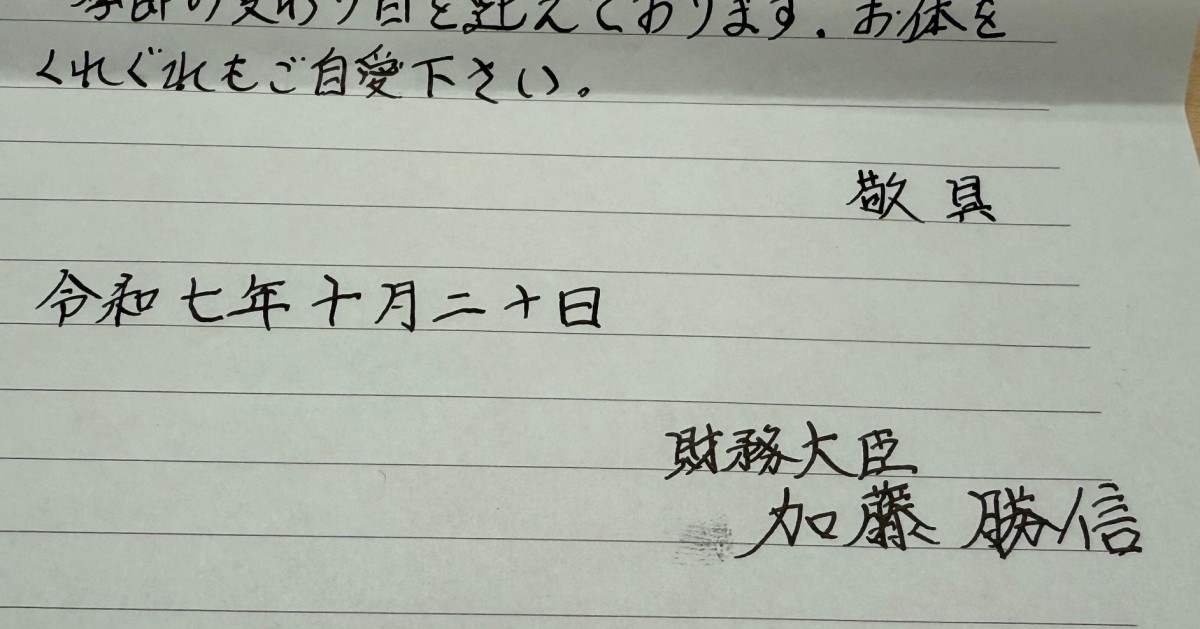 季節の変わり目を迎えております。お体を
くれぐれもご自愛下さい。
敬具
令和七年十月二十日
財務大臣
加藤勝信